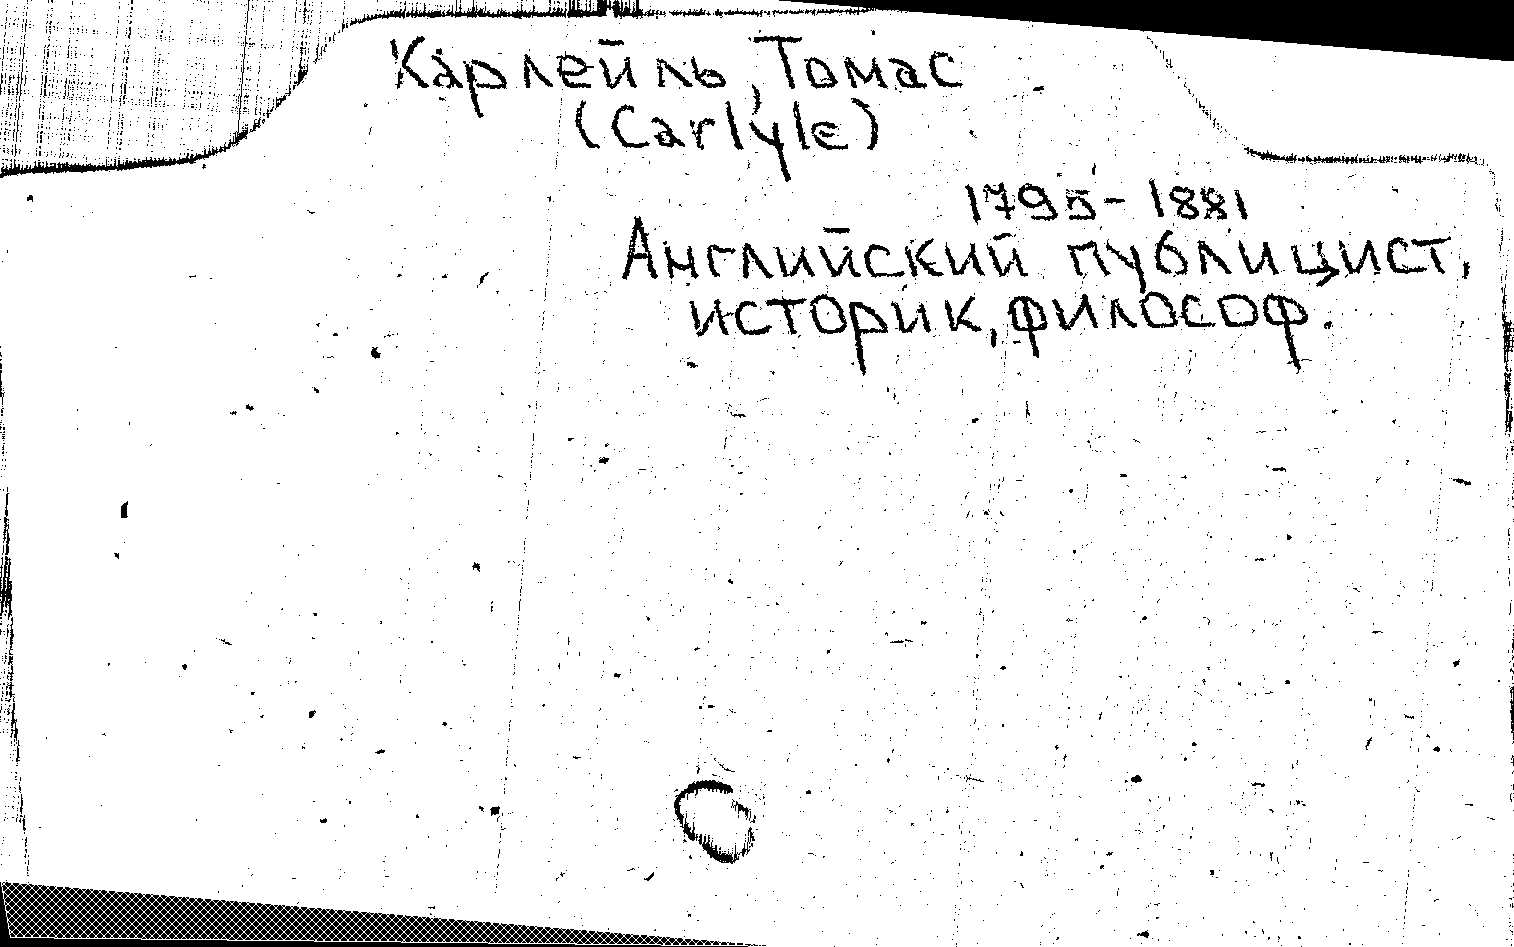 Карлейль, Томас
(Carlyle)
1795-1881
Английский публицист,
историк, философ.